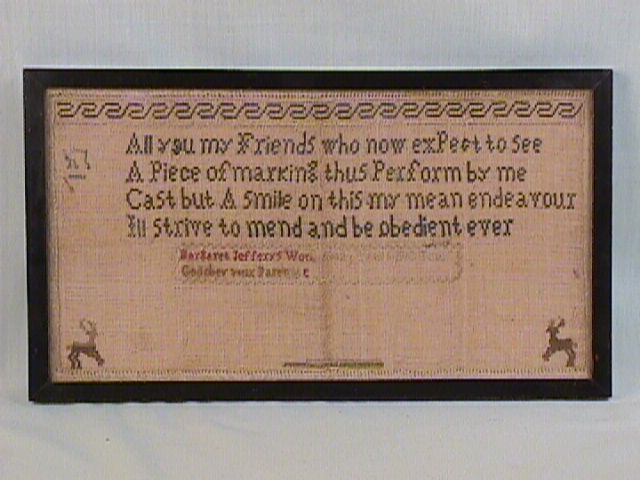 All you my Friends who now exPect to see
A Piece of marking thus Perform by me
Cast but A smile on this my mean endeavour
Ill strive to mend and be obedient ever
Bargaret Jefferys
your